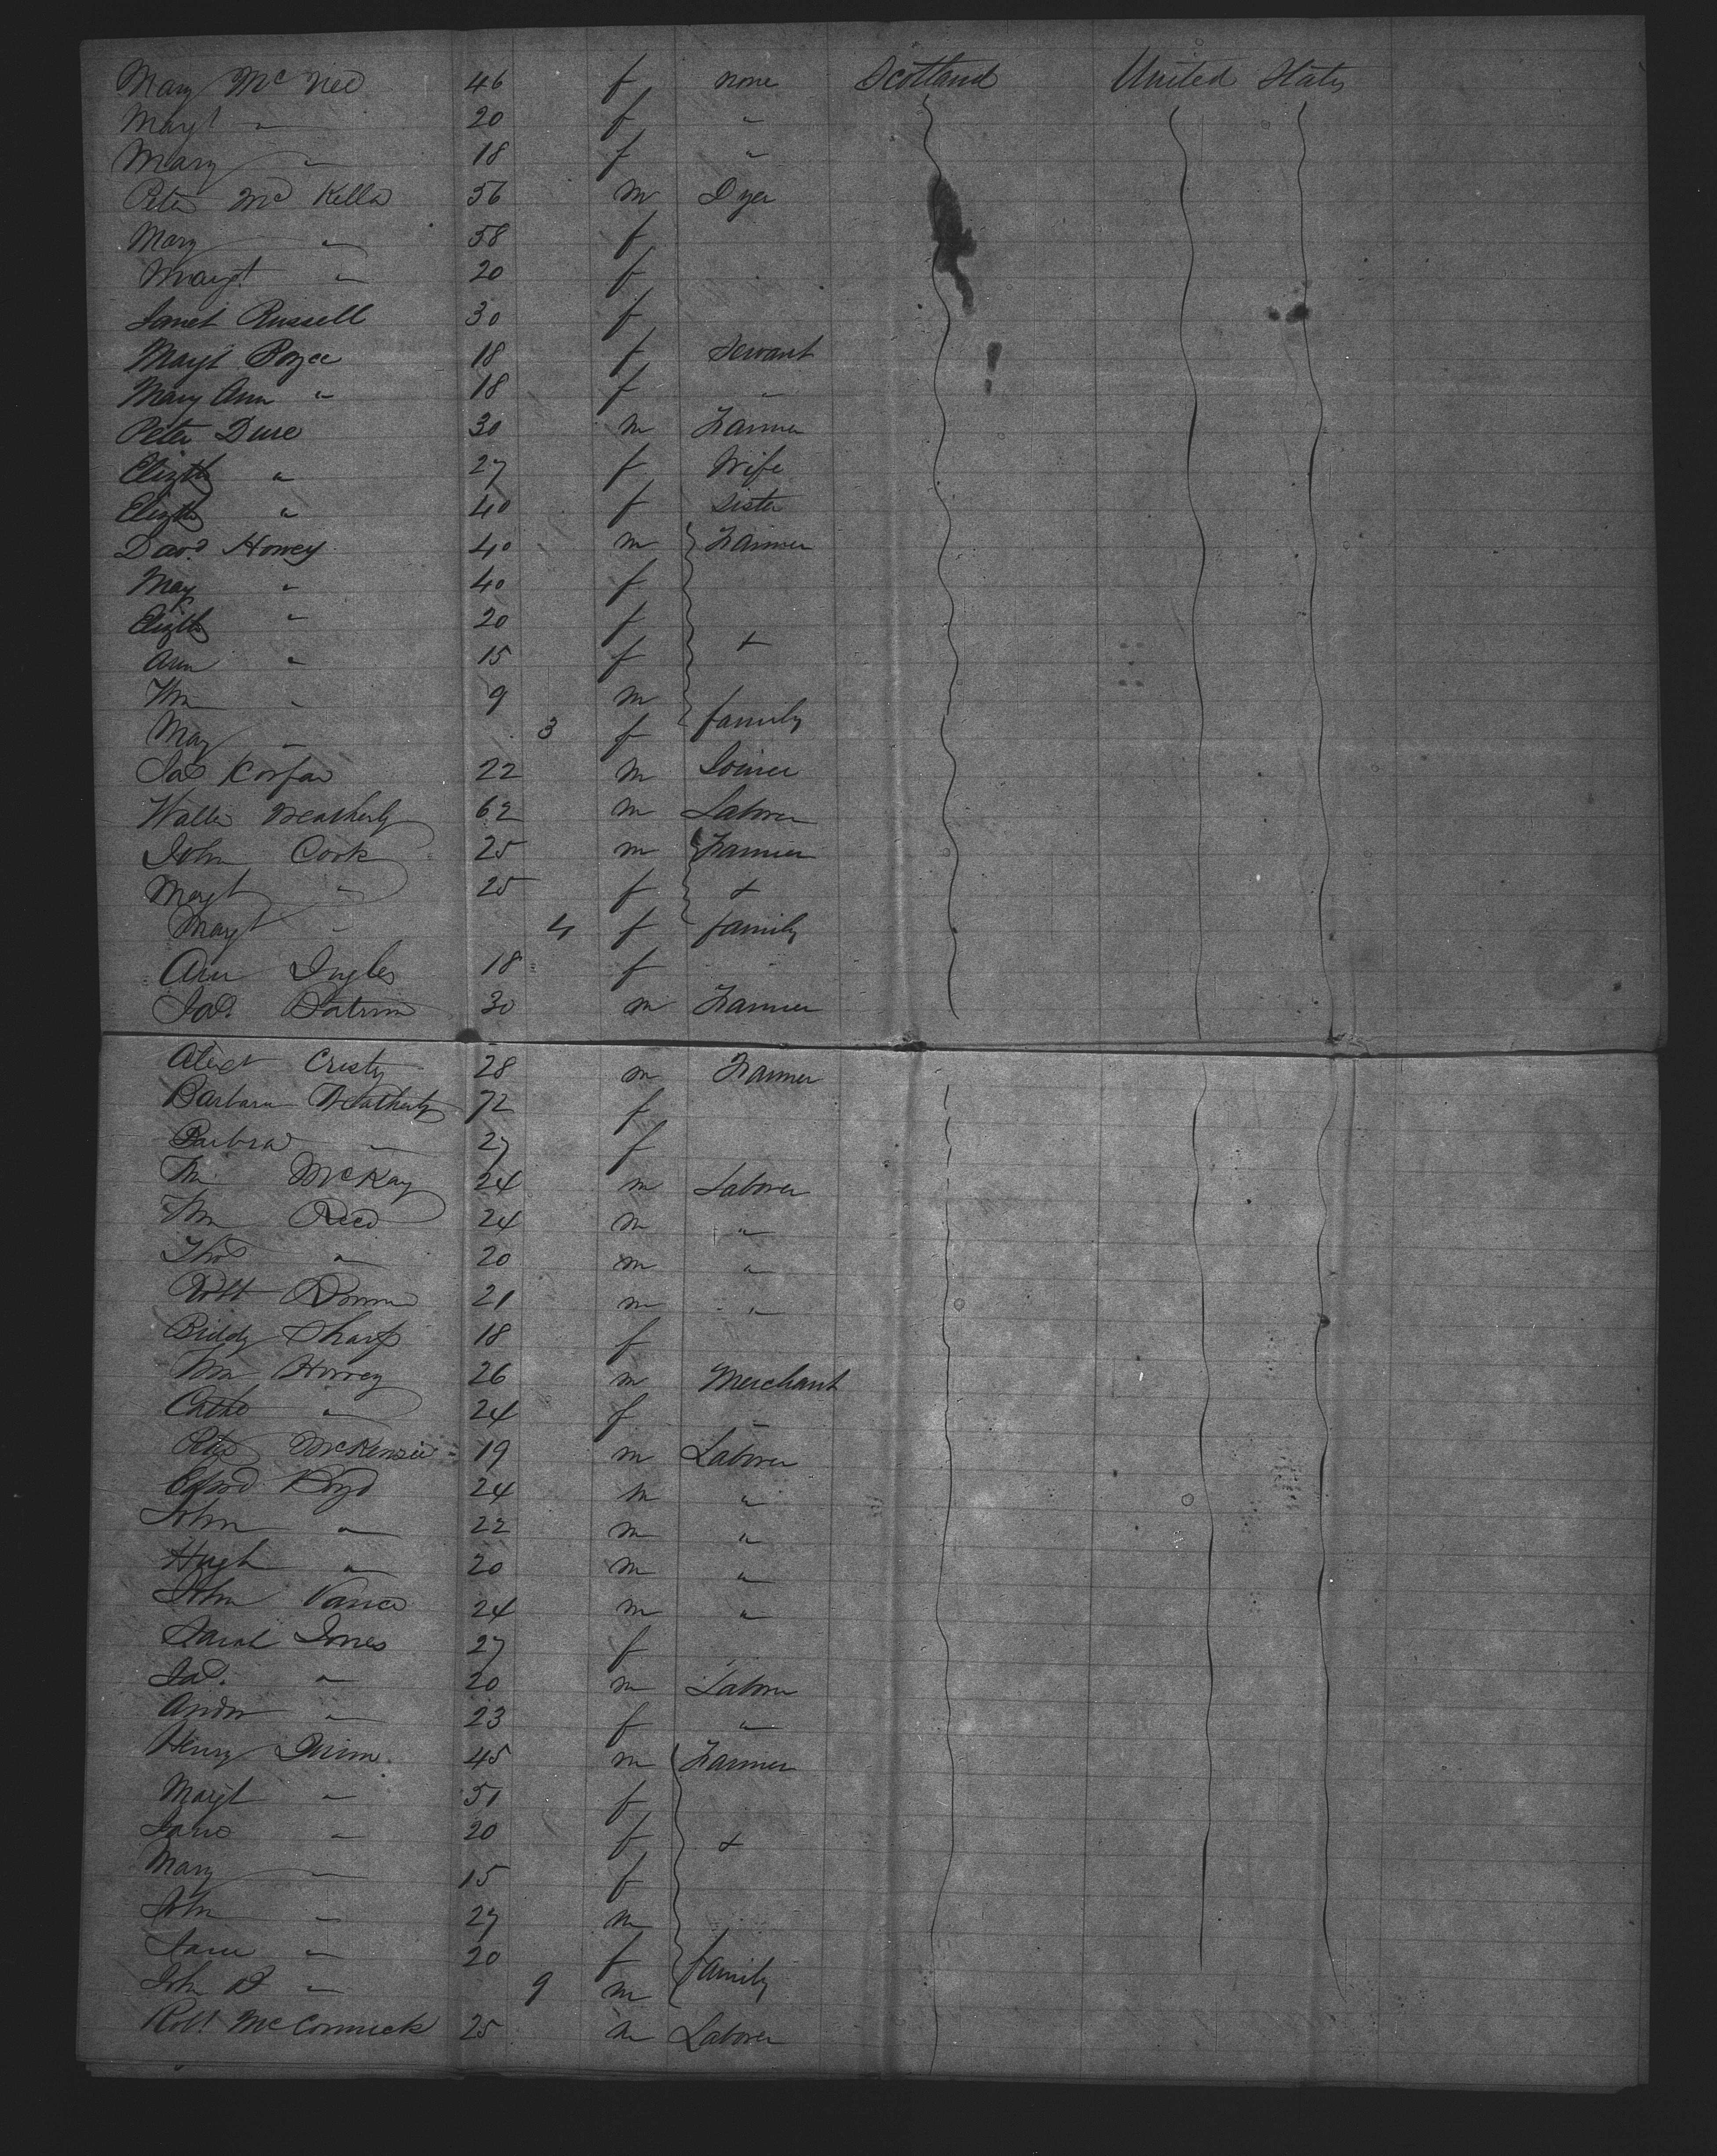 Mary McNee 46 f none Scotland United States
Margt " 20 f "
Mary " 18 f "
Peter McKella 56 m Dyer
Mary " 58 f
Margt " 20 f
Janet Russell 30 f
Margt Boyce 18 f Servant
Mary Ann " 18 f "
Peter Dure 30 m Farmer
Elizth " 27 f Wife
Elizth " 40 f Sister
Davd Howey 40 m Farmer
May " 40 f
Elizth " 20 f
Ann " 15 f +
Wm " 9 m
May " 3 f family
Jas 22 m Joiner
Walter Weatherly 62 m Laborer
John Cook 25 m Farmer
Margt " 25 f +
Margt " 4 f family
Ann Ingles 18 f
Jas. 30 m Farmer
Alexr Cristy 28 m Farmer
Barbara Weatherly 72 f
Barbra " 27 f
Wm McKay 24 m Laborer
Wm Reed 24 m "
Thos " 20 m "
Robt 21 m "
Biddy Sharp 18 f
Wm Howey 26 m Merchant
Cathe " 24 f "
Peter McKenzie 19 m Laborer
Edwd Boyd 24 m "
John " 22 m "
Hugh " 20 m "
John Vance 24 m "
Sarah Jones 27 f
Jas. " 20 m Laborer
Andw " 23 f "
Henry Quinn 45 m Farmer
Margt " 51 f
Jane " 20 f +
Mary " 15 f
John " 27 m
Jane " 20 f family
John " 9 m
Robt McCormick 25 m Laborer